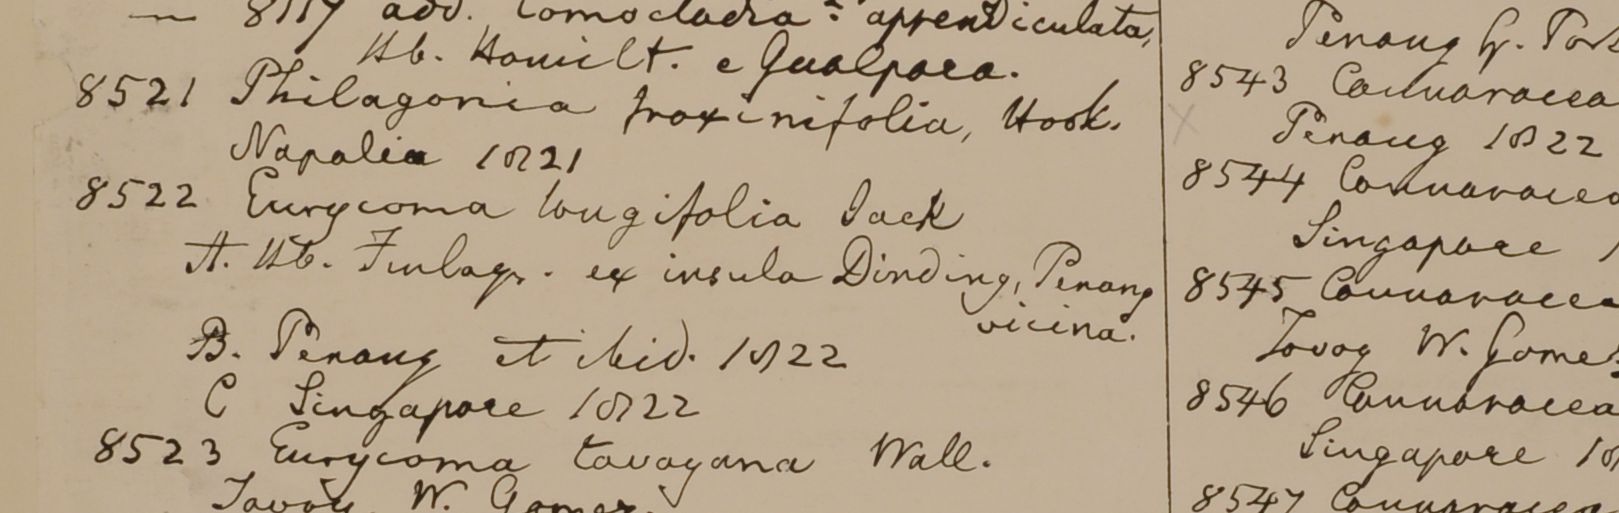 — 8517 add. Comocladia? appendiculata,
Hb. Hamilt. e Gualpara.
8521 Philagonia fraxinifolia, Hook.
Napalia 1821
8522 Eurycoma longifolia Jack
A. Hb. Finlays. ex insula Dinding, Penang
vicina.
B. Penang et ibid. 1822
C Singapore 1822
8523 Eurycoma tavoyana Wall.
Tavoy W. Gomez.
Penang G. Port
8543 Connaracea
Penang 1822
8544 Connaracea
Singapore
8545 Connaracea
Tavoy W. Gomez
8546 Connaracea
Singapore 18
8547 Connaracea